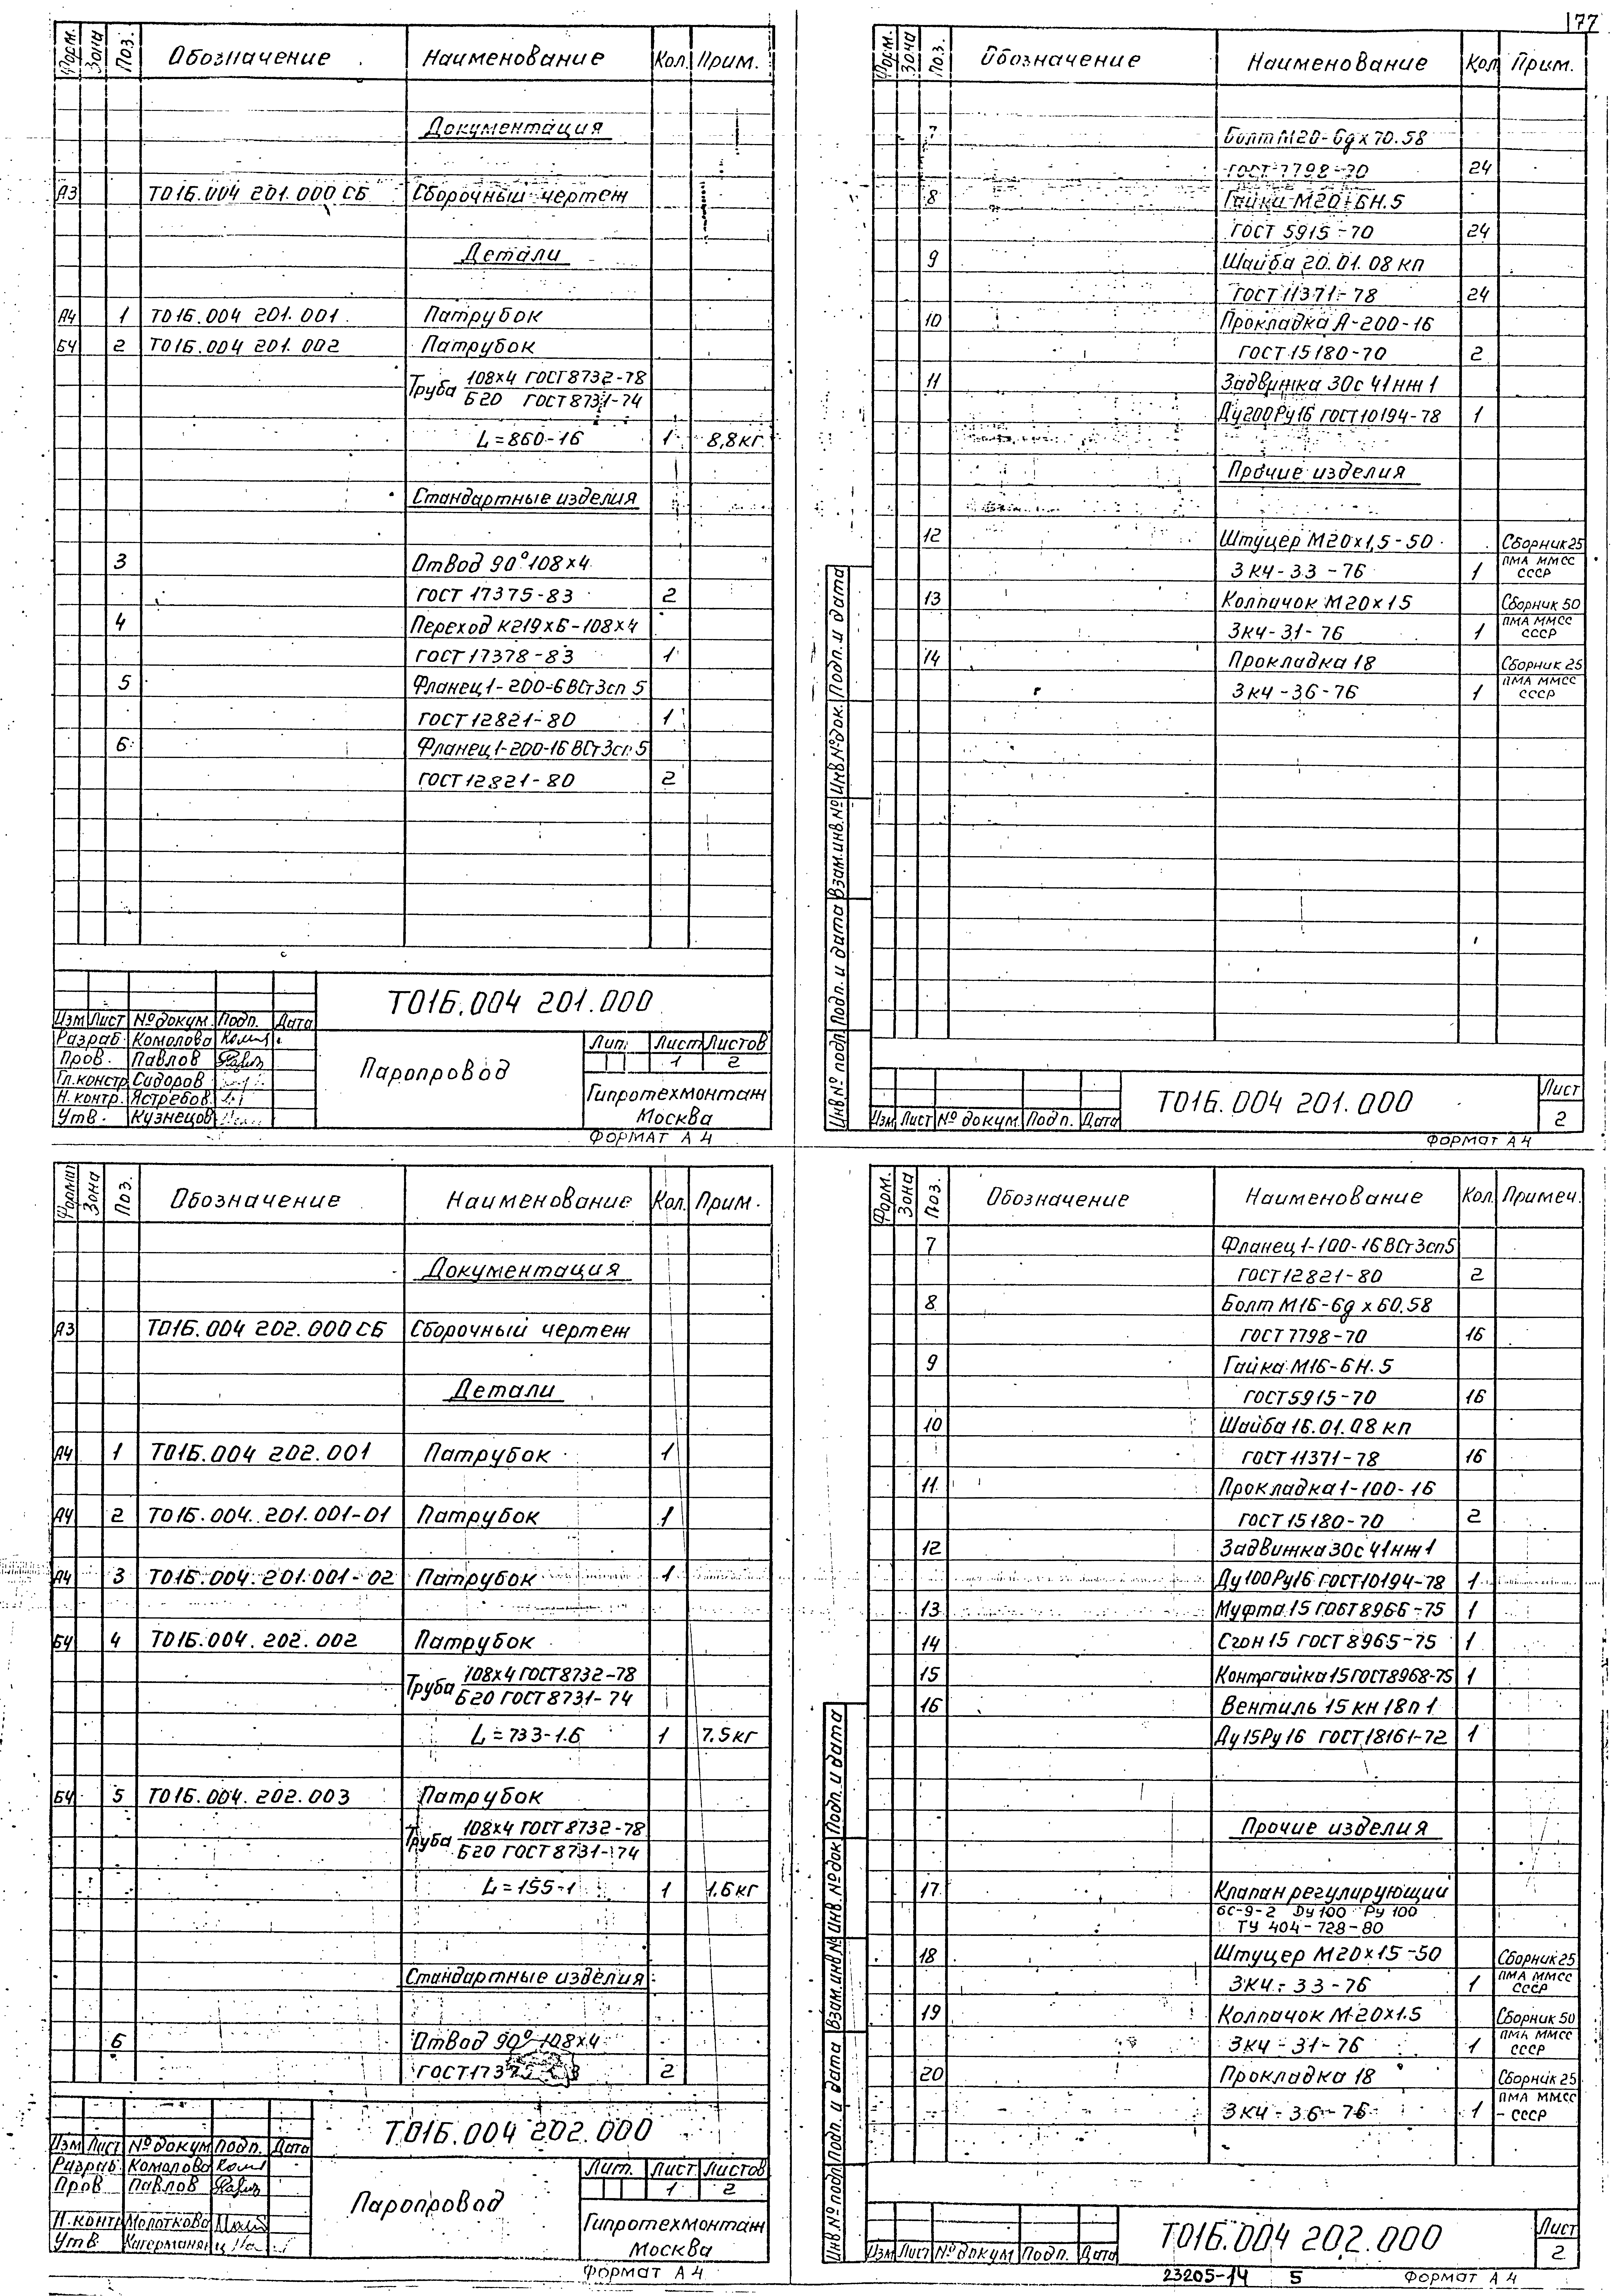 177
Форм. Зона Поз. Обозначение Наименование Кол. Прим.
Документация
А3 Т016.004 201.000 СБ Сборочный чертеж
Детали
А4 1 Т016.004 201.001 Патрубок
Б4 2 Т016.004 201.002 Патрубок
Труба 108х4 ГОСТ 8732-78
Б20 ГОСТ 8731-74
L=860-16 1 8,8кг
Стандартные изделия
3 Отвод 90° 108х4
ГОСТ 17375-83 2
4 Переход К219х6-108х4
ГОСТ 17378-83 1
5 Фланец 1-200-6 ВСт3сп 5
ГОСТ 12821-80 1
6 Фланец 1-200-16 ВСт3сп 5
ГОСТ 12821-80 2
Т016.004 201.000
Изм Лист № докум. Подп. Дата
Разраб. Комолова
Пров. Павлов
Гл.констр Сидоров
Н.контр. Ястребов
Утв. Кузнецов
Паропровод
Лит. Лист Листов
1 2
Гипротехмонтаж
Москва
Формат А4
Форм. Зона Поз. Обозначение Наименование Кол Прим.
7 Болт М20-6gх70.58
ГОСТ 7798-70 24
8 Гайка М20-6Н.5
ГОСТ 5915-70 24
9 Шайба 20.01.08 кп
ГОСТ 11371-78 24
10 Прокладка А-200-16
ГОСТ 15180-70 2
11 Задвижка 30с 41нж 1
Ду200Ру16 ГОСТ 10194-78 1
Прочие изделия
12 Штуцер М20х1,5-50 Сборник 25
3К4-33-76 1 ПМА ММСС
СССР
13 Колпачок М20х15 Сборник 50
3К4-31-76 1 ПМА ММСС
СССР
14 Прокладка 18 Сборник 25
3К4-36-76 1 ПМА ММСС
СССР
Инв № подл. Подп. и дата Взам.инв.№ Инв № док. Подп. и дата
Изм Лист № докум. Подп. Дата
Т016.004 201.000
Лист
2
Формат А4
Формат Зона Поз. Обозначение Наименование Кол. Прим.
Документация
А3 Т016.004 202.000 СБ Сборочный чертеж
Детали
А4 1 Т016.004 202.001 Патрубок 1
А4 2 Т016.004.201.001-01 Патрубок 1
А4 3 Т016.004.201.001-02 Патрубок 1
Б4 4 Т016.004.202.002 Патрубок
Труба 108х4 ГОСТ 8732-78
Б20 ГОСТ 8731-74
L=733-1.6 1 7.5кг
Б4 5 Т016.004.202.003 Патрубок
Труба 108х4 ГОСТ 8732-78
Б20 ГОСТ 8731-74
L=155-1 1 1.6кг
Стандартные изделия
6 Отвод 90° 108х4
2
Т016.004 202.000
Изм Лист № докум Подп. Дата
Разраб. Комолова
Пров Павлов
Н.контр Молоткова
Утв.
Паропровод
Лит. Лист Листов
1 2
Гипротехмонтаж
Москва
Формат А4
Форм. Зона Поз. Обозначение Наименование Кол. Примеч.
7 Фланец 1-100-16 ВСт3сп5
ГОСТ 12821-80 2
8 Болт М16-6g х 60.58
ГОСТ 7798-70 16
9 Гайка М16-6Н.5
ГОСТ 5915-70 16
10 Шайба 16.01.08 кп
ГОСТ 11371-78 16
11 Прокладка 1-100-16
ГОСТ 15180-70 2
12 Задвижка 30с 41нж1
Ду100Ру16 ГОСТ10194-78 1
13 Муфта 15 ГОСТ 8966-75 1
14 Сгон 15 ГОСТ 8965-75 1
15 Контргайка 15 ГОСТ8968-75 1
16 Вентиль 15 кн 18п 1
Ду15Ру16 ГОСТ 18161-72 1
Прочие изделия
17 Клапан регулирующий
6с-9-2 Ду 100 Ру 100
ТУ 404-728-80
18 Штуцер М20х15-50 Сборник 25
3К4-33-76 1 ПМА ММСС
СССР
19 Колпачок М20х1.5 Сборник 50
3К4-31-76 1 ПМА ММСС
СССР
20 Прокладка 18 Сборник 25
3К4-36-76 1 ПМА ММСС
СССР
Инв № подл Подп. и дата Взам.инв № Инв. № док Подп. и дата
Изм Лист № докум Подп. Дата
Т016.004 202.000
Лист
2
23205-14 5 Формат А4